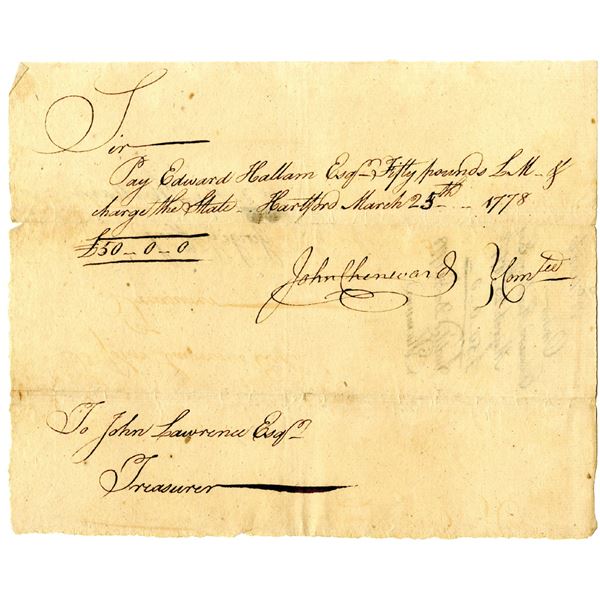 Sir
Pay Edward Hallam Esqr Fifty pounds L M &
charge the State Hartford March 25th 1778
£50-0-0
John Chenward } Comtee
To John Lawrence Esqr
Treasurer